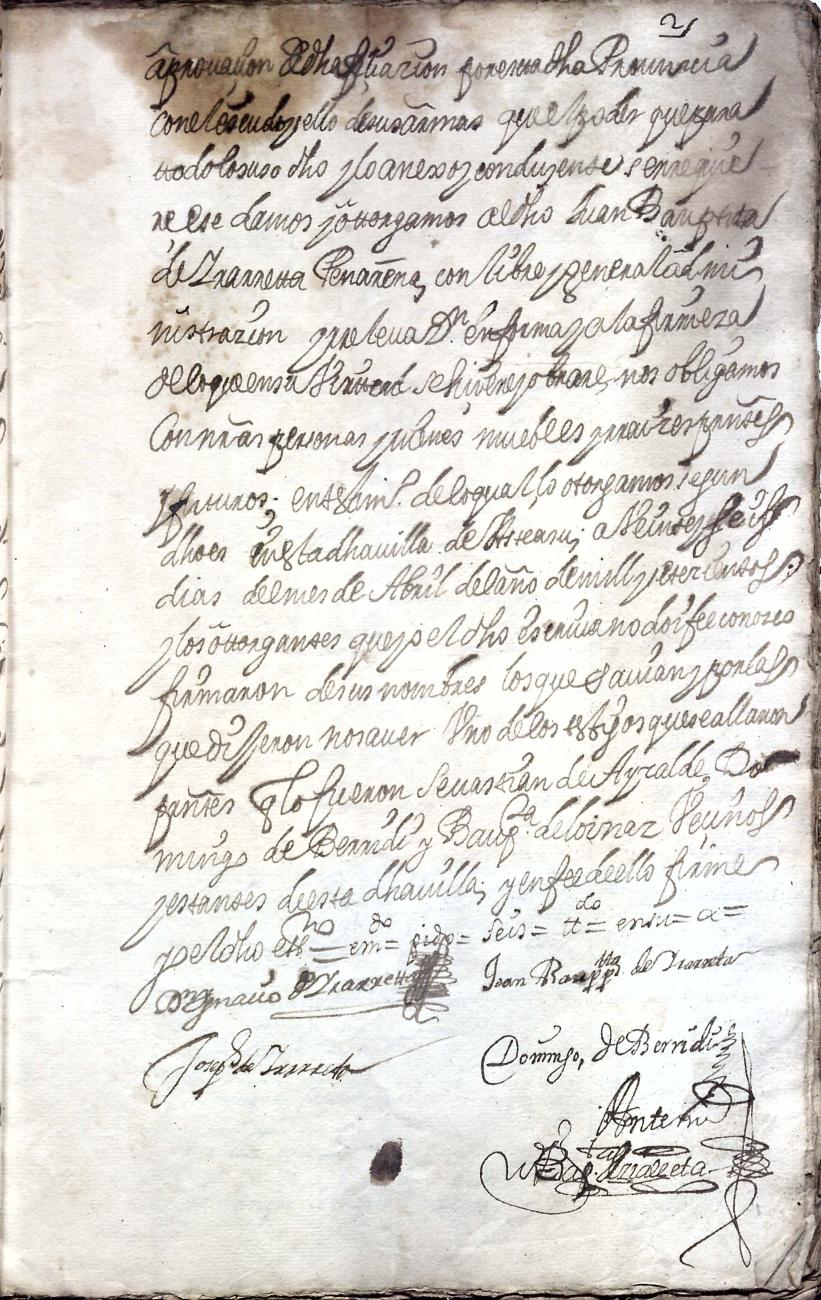 2
aprouazion de dha filiazion por esta dha Prouinzia
con el escudo y sello de sus armas que el poder que para
ttodo lo suso dho y lo anexo y conduzente se requie
re ese damos y ottorgamos al dho Juan Bauptista
de Yrarretta Penarena, con libre y general admi
nistrazion y releua Dn. en forma y a la firmeza
de lo que en su virtud se hiziere y obrare, nos obligamos
Con nras personas y uienes muebles y rraizes pntes
y futuros. en testim.o de lo qual lo otorgamos segun
dho es en esta dha uilla de a Veinte y seis
dias del mes de Abril del año de mill y setezientos.
y los ottorgantes que yo el dho escriuano doi fee conozco
firmaron de sus nombres los que sauian y por las
que dixeron no sauer Vno de los testigos que se allaron
pntes q lo fueron Seuastian de Ayzalde, Do
mingo de Berridi y Baupta. de Loinaz Vezinos
y estantes de esta dha uilla, y en fee de ello firme
yo el dho essno = em do = pido = seis = tt do = en su = a =
Dn Ygnacio de Yrarretta Joan Bauptta de Yrarreta
Joseph de Yrarreta
Domingo, de Berridi
Ante mi
Bap.ta